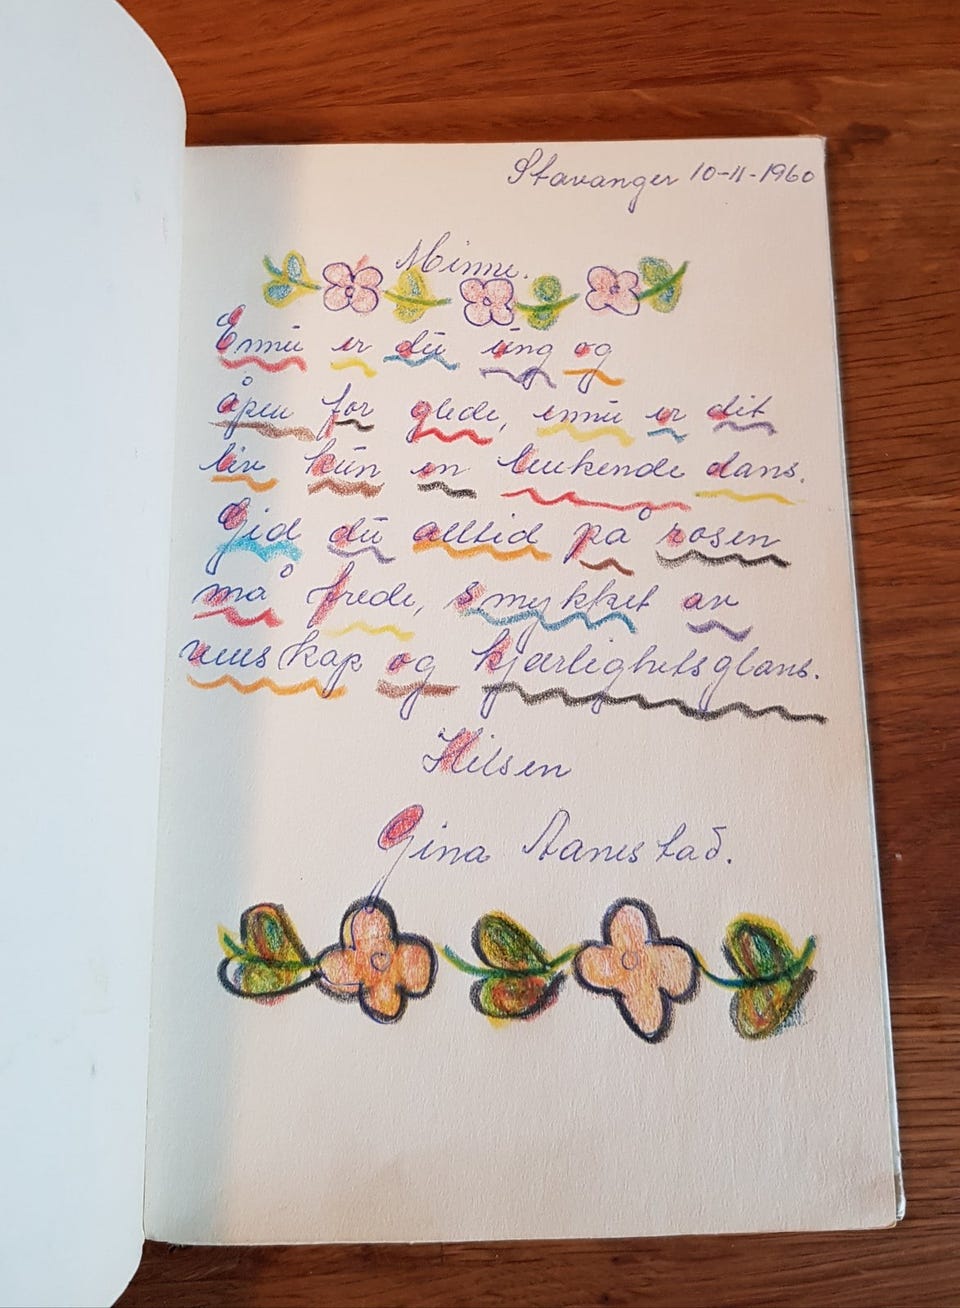 Stavanger 10-11-1960
Minne.
Ennu er du ung og
åpen for glede, ennu er dit
liv kun en lukende dans.
Gid du alltid på rosen
må frede, smykket av
venskap og kjærlighetsglans.
Hilsen
Gina Aanestad.